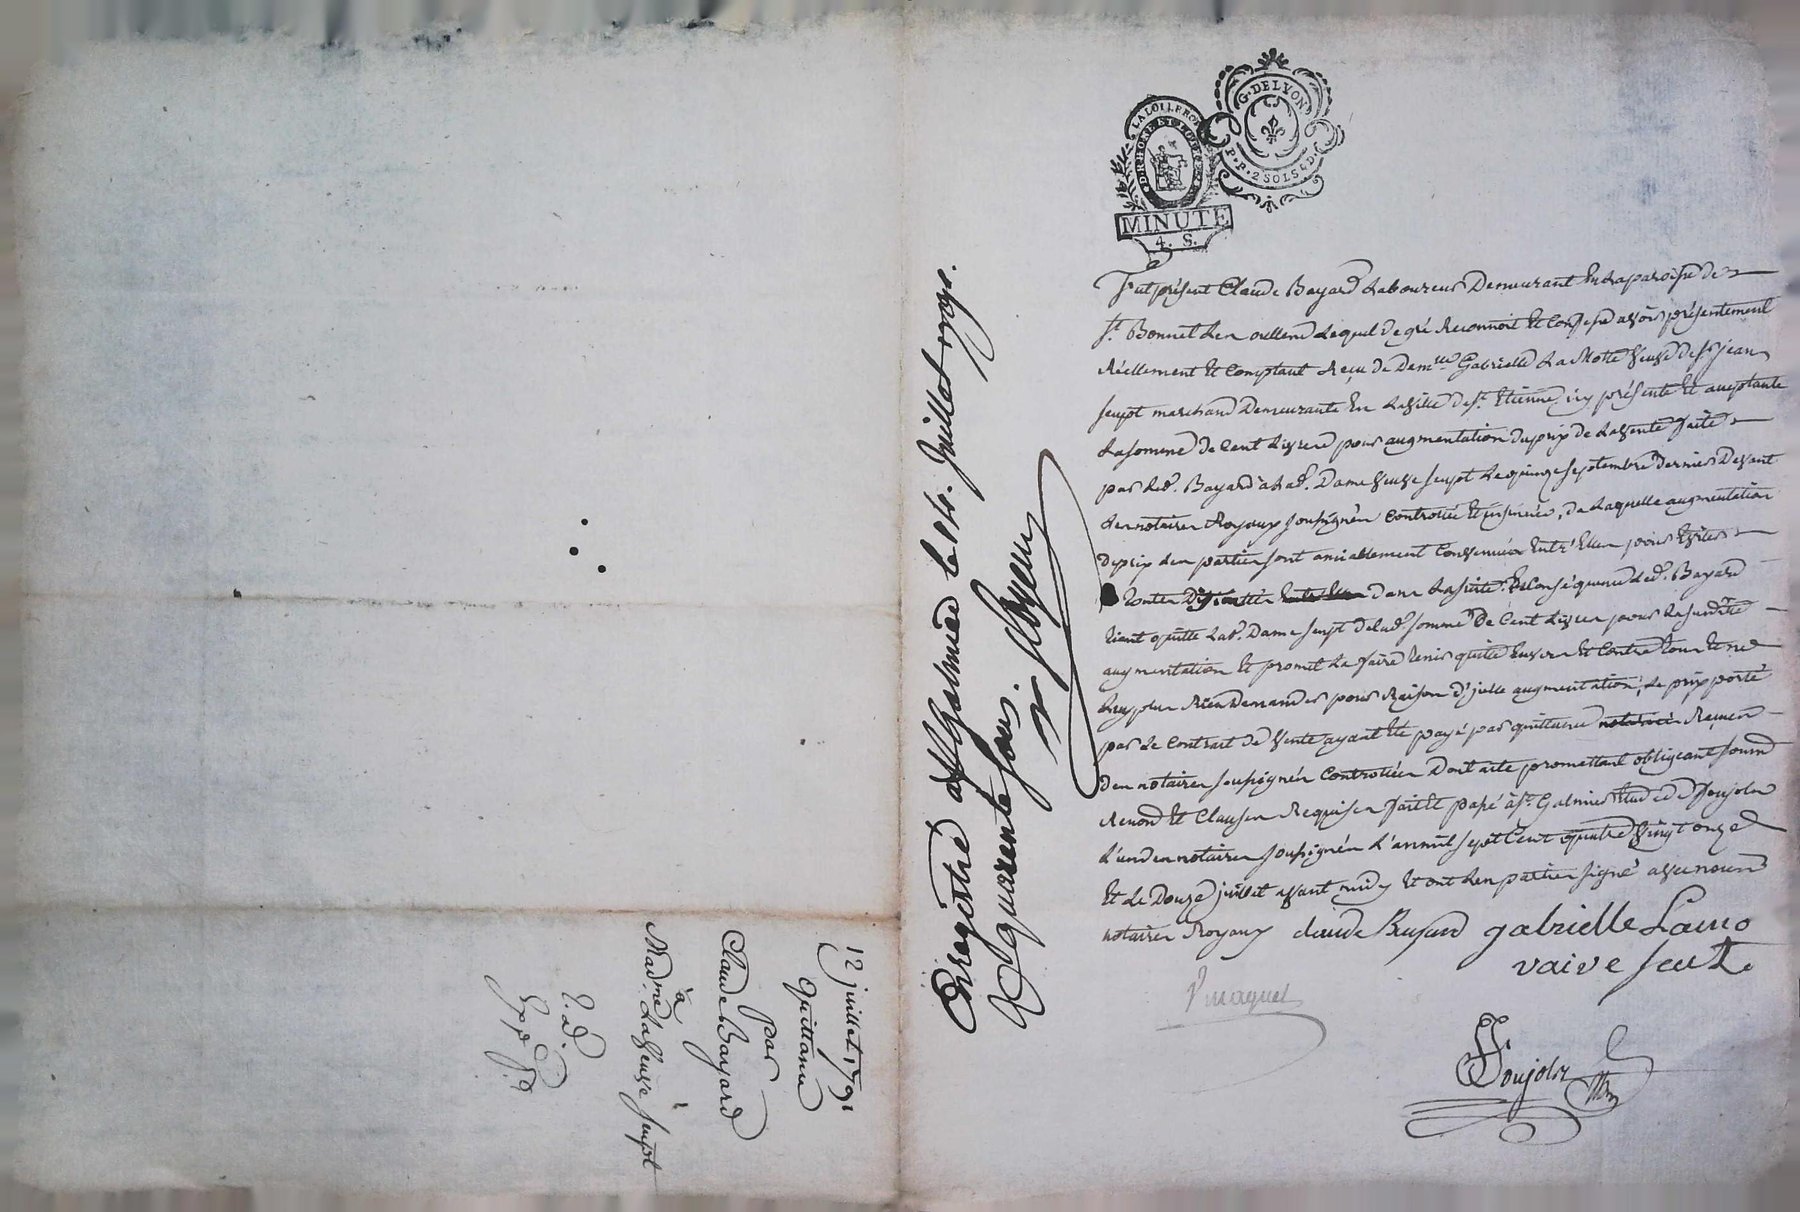 G. DE LYON
P. P. 2 SOLS 4 D.
LA LOI LE ROI
D. RHONE ET LOIRE
MINUTE
4. S.
Fut présent Claude Bayard Laboureur Demeurant En la paroisse de
St. Bonnet Les oulles Lequel de gré Reconnoit Et Confesse avoir présentement
Réellement Et Comptant Reçu de Demlle Gabrielle La Motte Veuve de Sr jean
Seupt marchand Demeurante En la Ville de St. Etienne, icy présente Et acceptante
La somme de Cent Livres pour augmentation du prix de la Vente faite
par led. Bayard à lad. Dame Veuve Seupt Le quinze Septembre Dernier Devant
Les notaires Royaux Soussignés Controllée Et insinuée, de Laquelle augmentation
de prix Les parties sont amiablement Convenues Entr'Elles pour Eviter
toutes Difficultés dans la suite. En Conséquence led. Bayard
tient quitte lad. Dame Seupt de lad. somme de Cent Livres pour la susditte
augmentation Et promet La faire tenir quitte Envers Et Contre tous Et ne
luy plus Rien Demander pour Raison d'jcelle augmentation, Le prix porté
par Le Contrat de Vente ayant Eté payé par quittance Reçues
des notaires soussignés Controllées Dont acte promettant obligeant soumd
Renond Et Clauses Requises fait Et passé à St. Galmier Etude de Poujols
L'un des notaires soussignés L'an mil sept Cent quatre Vingt onze
Et Le Douze juillet avant midy Et ont Les parties signé avec nous
notaires Royaux claude Bayard gabrielle Lamo
vaive seut.
Poujols
Enregistré à St Galmier le 14. Juillet 1791.
R quarente sous.
12 juillet 1791
Quittance
par
Claude Bayard
à
Madme La Veuve Seupt